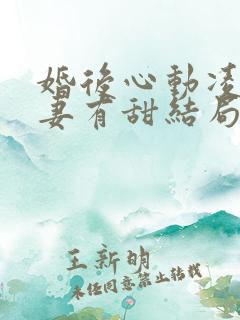 婚後心動凌
妻有甜結局
王新明
未经同意禁止转载